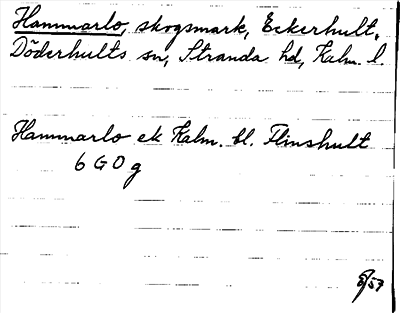 Hammarlo, skogsmark, Eckerhult,
Döderhults sn, Stranda hd, Kalm. l.
Hammarlo ek Kalm. bl. Flinshult
6 G O g
8/57